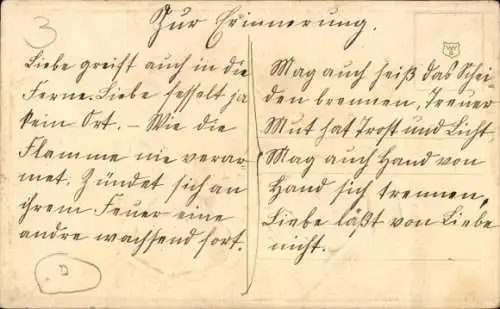 3
Zur Erinnerung.
Liebe greift auch in die
Ferne. Liebe fesselt ja
kein Ort. – Wie die
Flamme nie verar-
met. Zündet sich an
ihrem Feuer eine
andre wachsend fort.
Mag auch heiß das Schei-
den brennen, Treuer
Mut hat Trost und Licht,
Mag auch Hand von
Hand sich trennen,
Liebe läßt von Liebe
nicht.
D